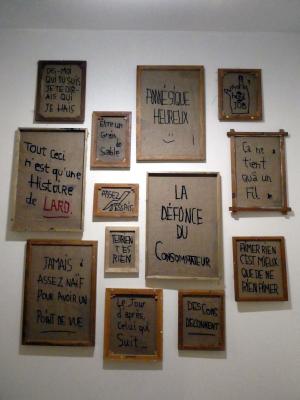 DIS-MOI
QUI TU SUIS
JE TE DIR-
AIS QUI
JE HAIS
ÊTRE UN
Grain
de
Sable
AMNÉSIQUE
HEUREUX
JOB
TOUT CECI
n'est qu'une
Histoire
de LARD.
ASSEZ
Ça ne
tient
qu'à un
Fil
LA
DÉFONCE
DU
CONSOMMATEUR
T'ES RIEN
JAMAIS
ASSEZ NAÏF
POUR AVOIR UN
POINT DE VUE
Le Jour
d'après,
celui qui
Suit...
DES CONS
DÉCONNENT
AIMER RIEN
C'EST MIEUX
QUE DE NE
RIEN AIMER